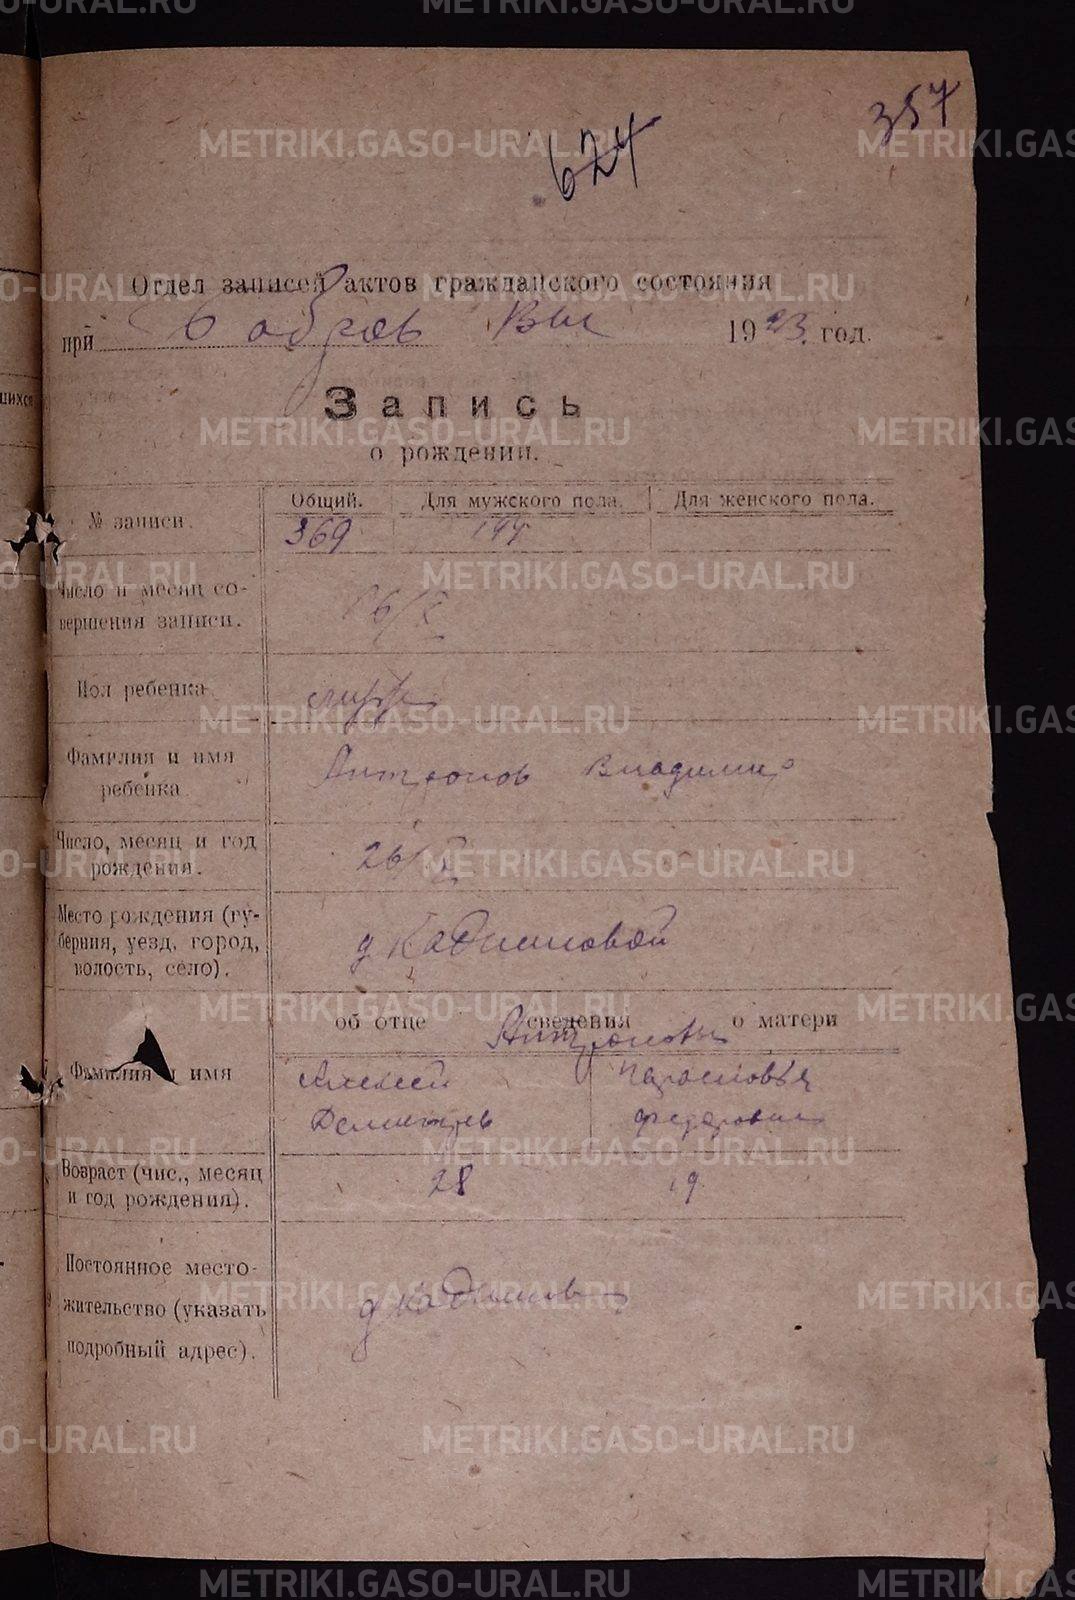 METRIKI.GASO-URAL.RU
357
624
Отдел записей актов гражданского состояния
при Бобров Вик 1923 год.
Запись
о рождении.
№ записи. Общий. Для мужского пола. Для женского пола.
369
Число и месяц со-
вершения записи.
Пол ребенка
Фамилия и имя
ребенка
Антропов Владимир
Число, месяц и год
рождения.
26/X
Место рождения (гу-
берния, уезд, город,
волость, село).
д Кадниковой
об отце сведения о матери
Антроповы
Фамилия и имя
Алексей
Парасковья
Дементьев
Федоровна
Возраст (чис., месяц
и год рождения).
28 19
Постоянное место-
жительство (указать
подробный адрес).